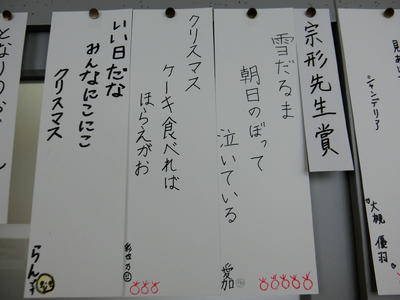 見あい
シャンデリア
大槻優羽
宗形先生賞
雪だるま
朝日のぼって
泣いている
愛加
クリスマス
ケーキ食べれば
ほらえがお
いい日だな
みんなにこにこ
クリスマス
らん
となりの